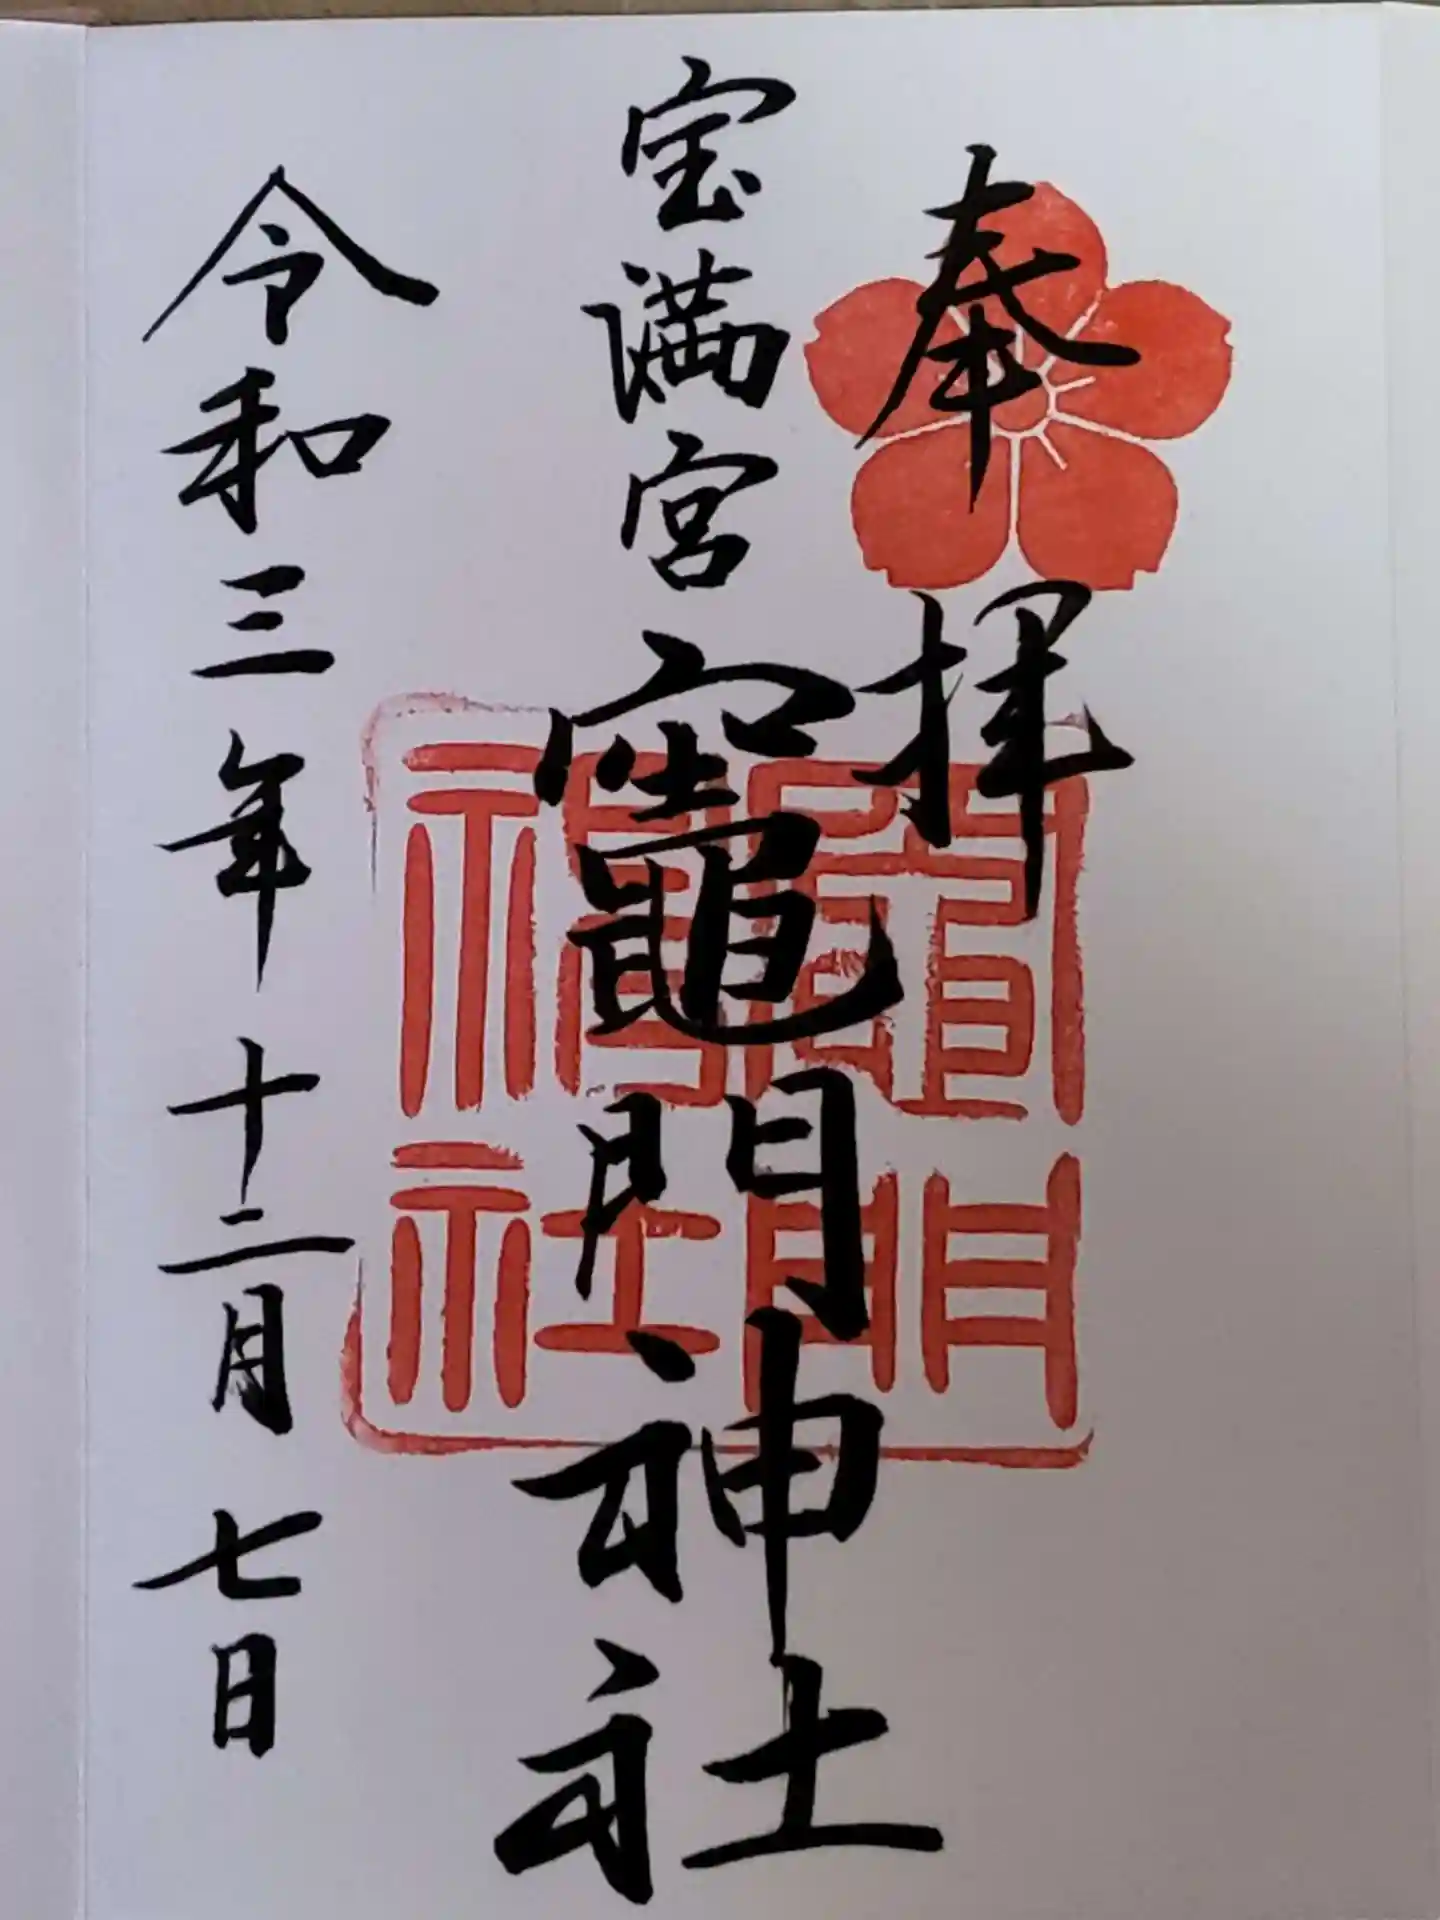 奉拝
宝満宮竈門神社
令和三年十二月七日
竈門
神社